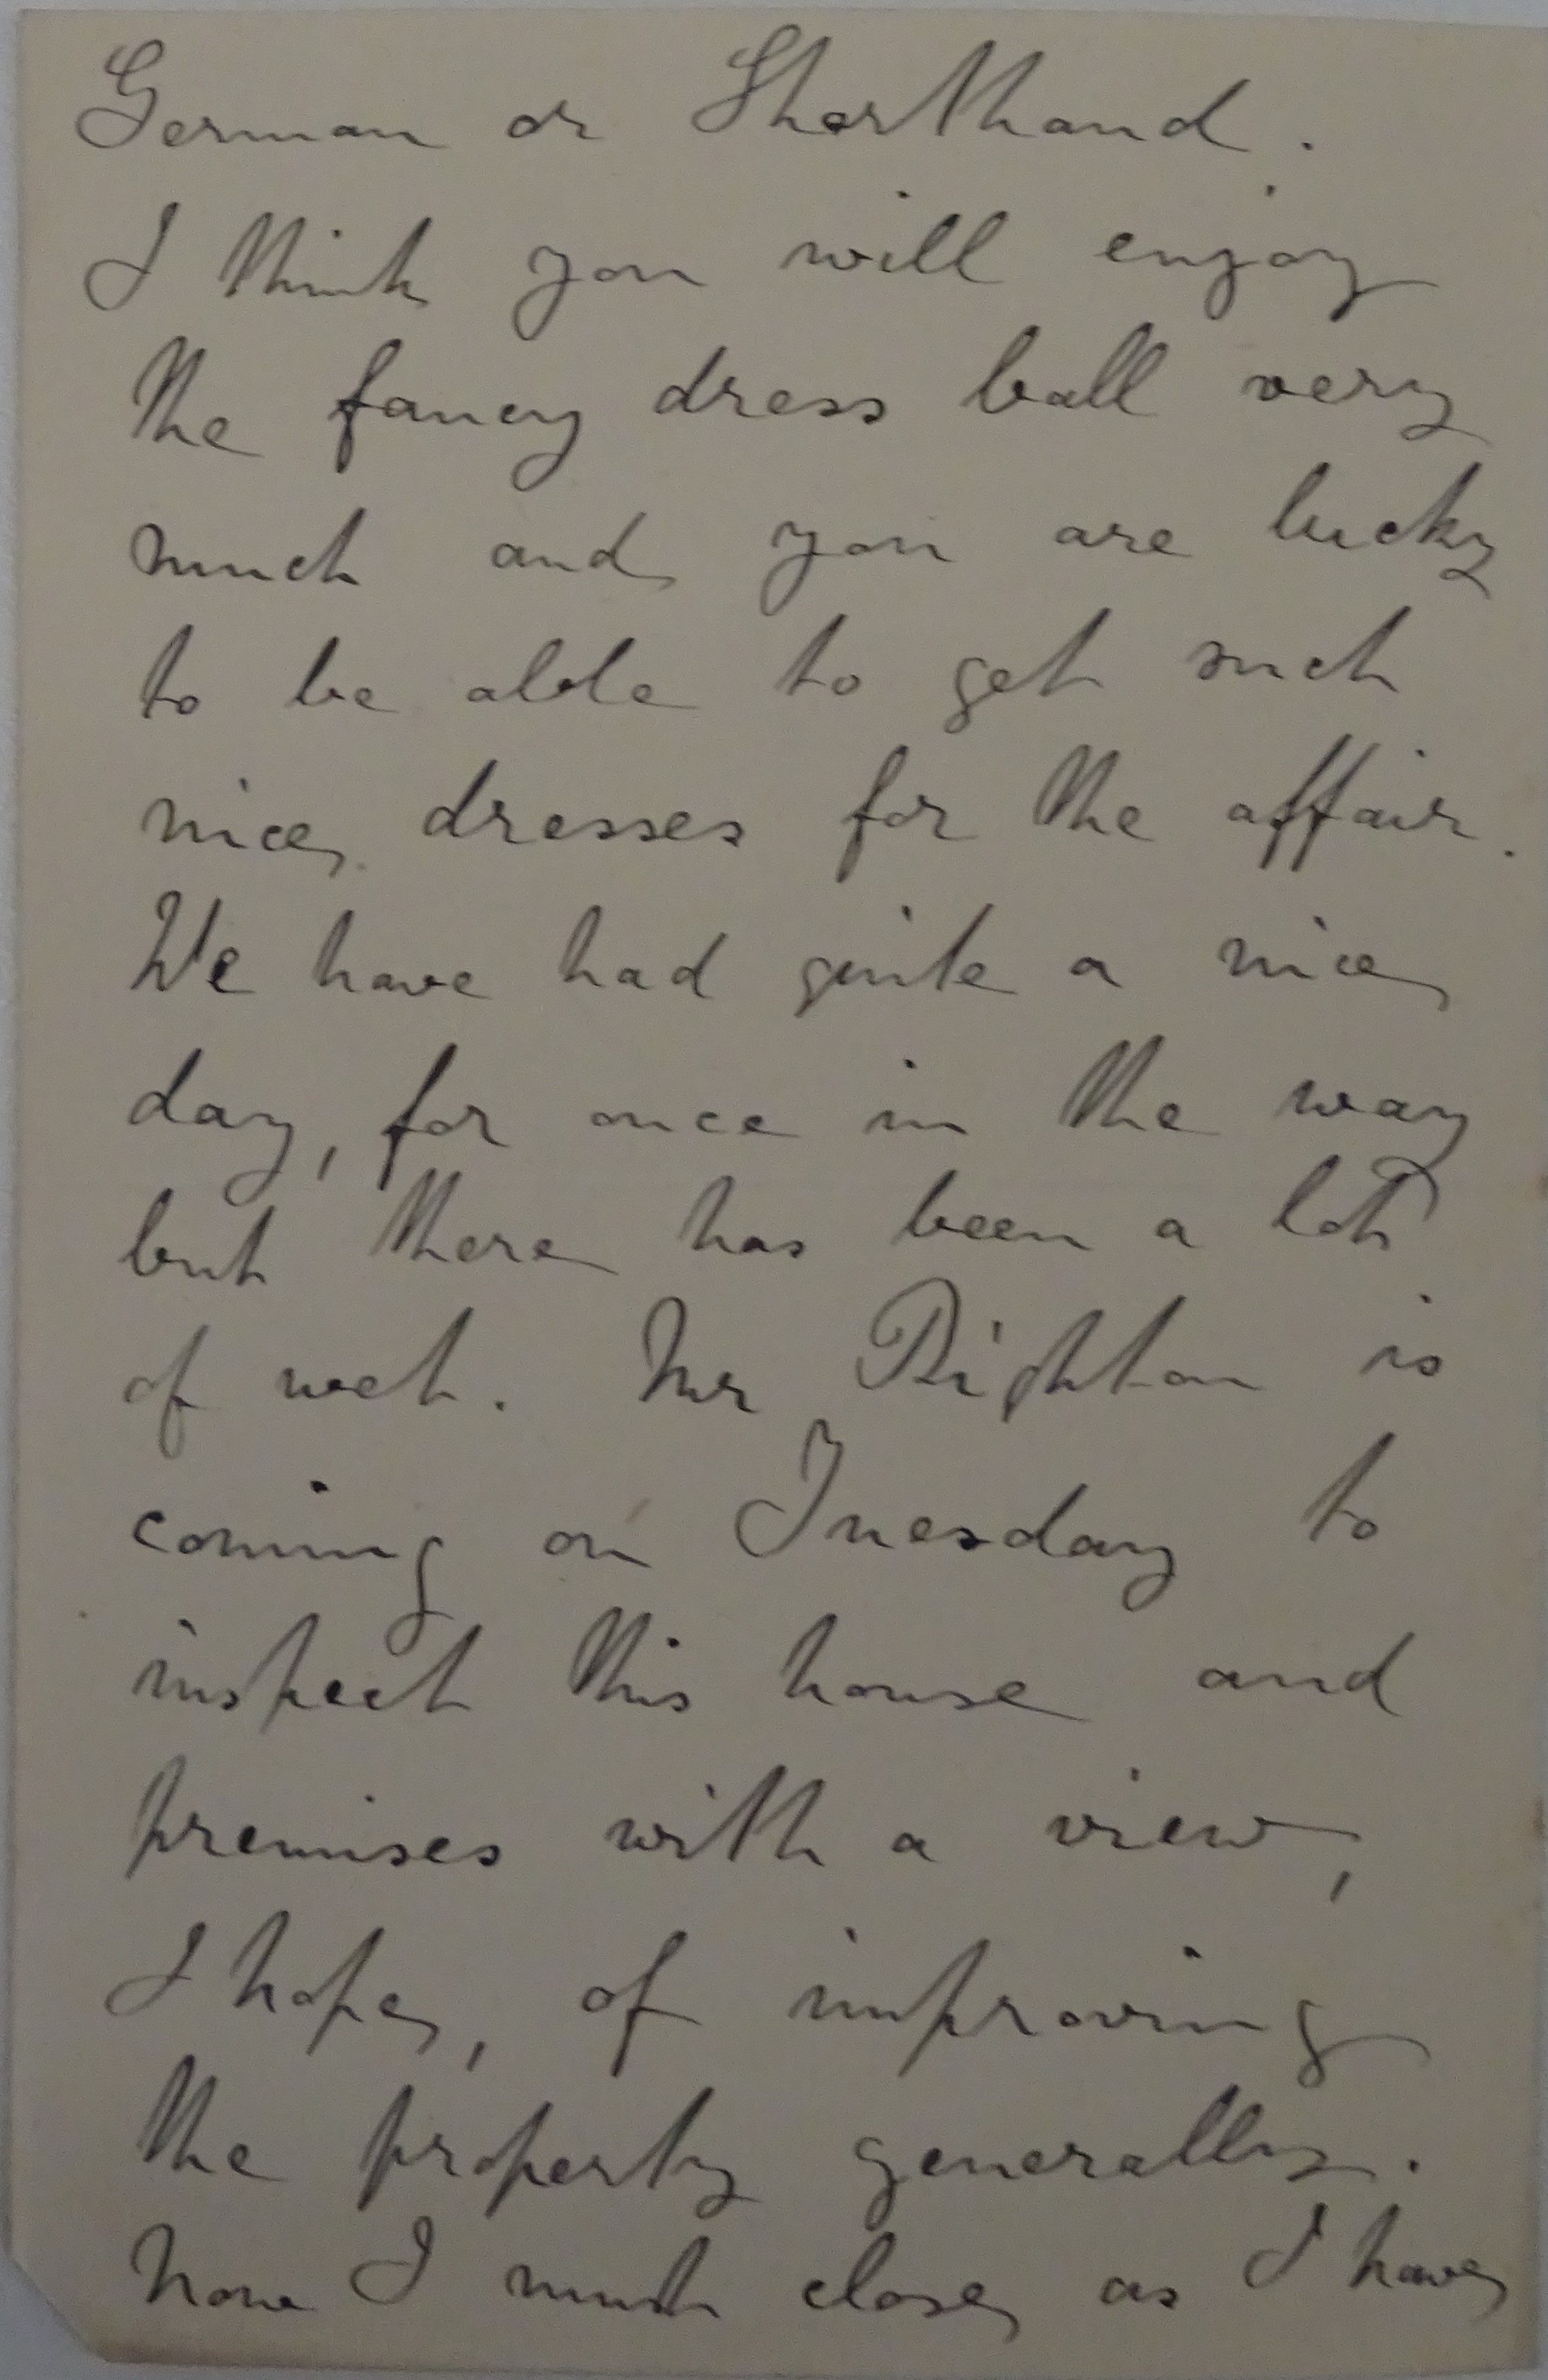 German or Shorthand.
I think you will enjoy
the fancy dress ball very
much and you are lucky
to be able to get such
nice dresses for the affair.
We have had quite a nice
day, for once in the way
but there has been a lot
of wet. Mr Righton is
coming on Tuesday to
inspect this house and
premises with a view,
I hope, of improving
the property generally.
Now I must close as I have